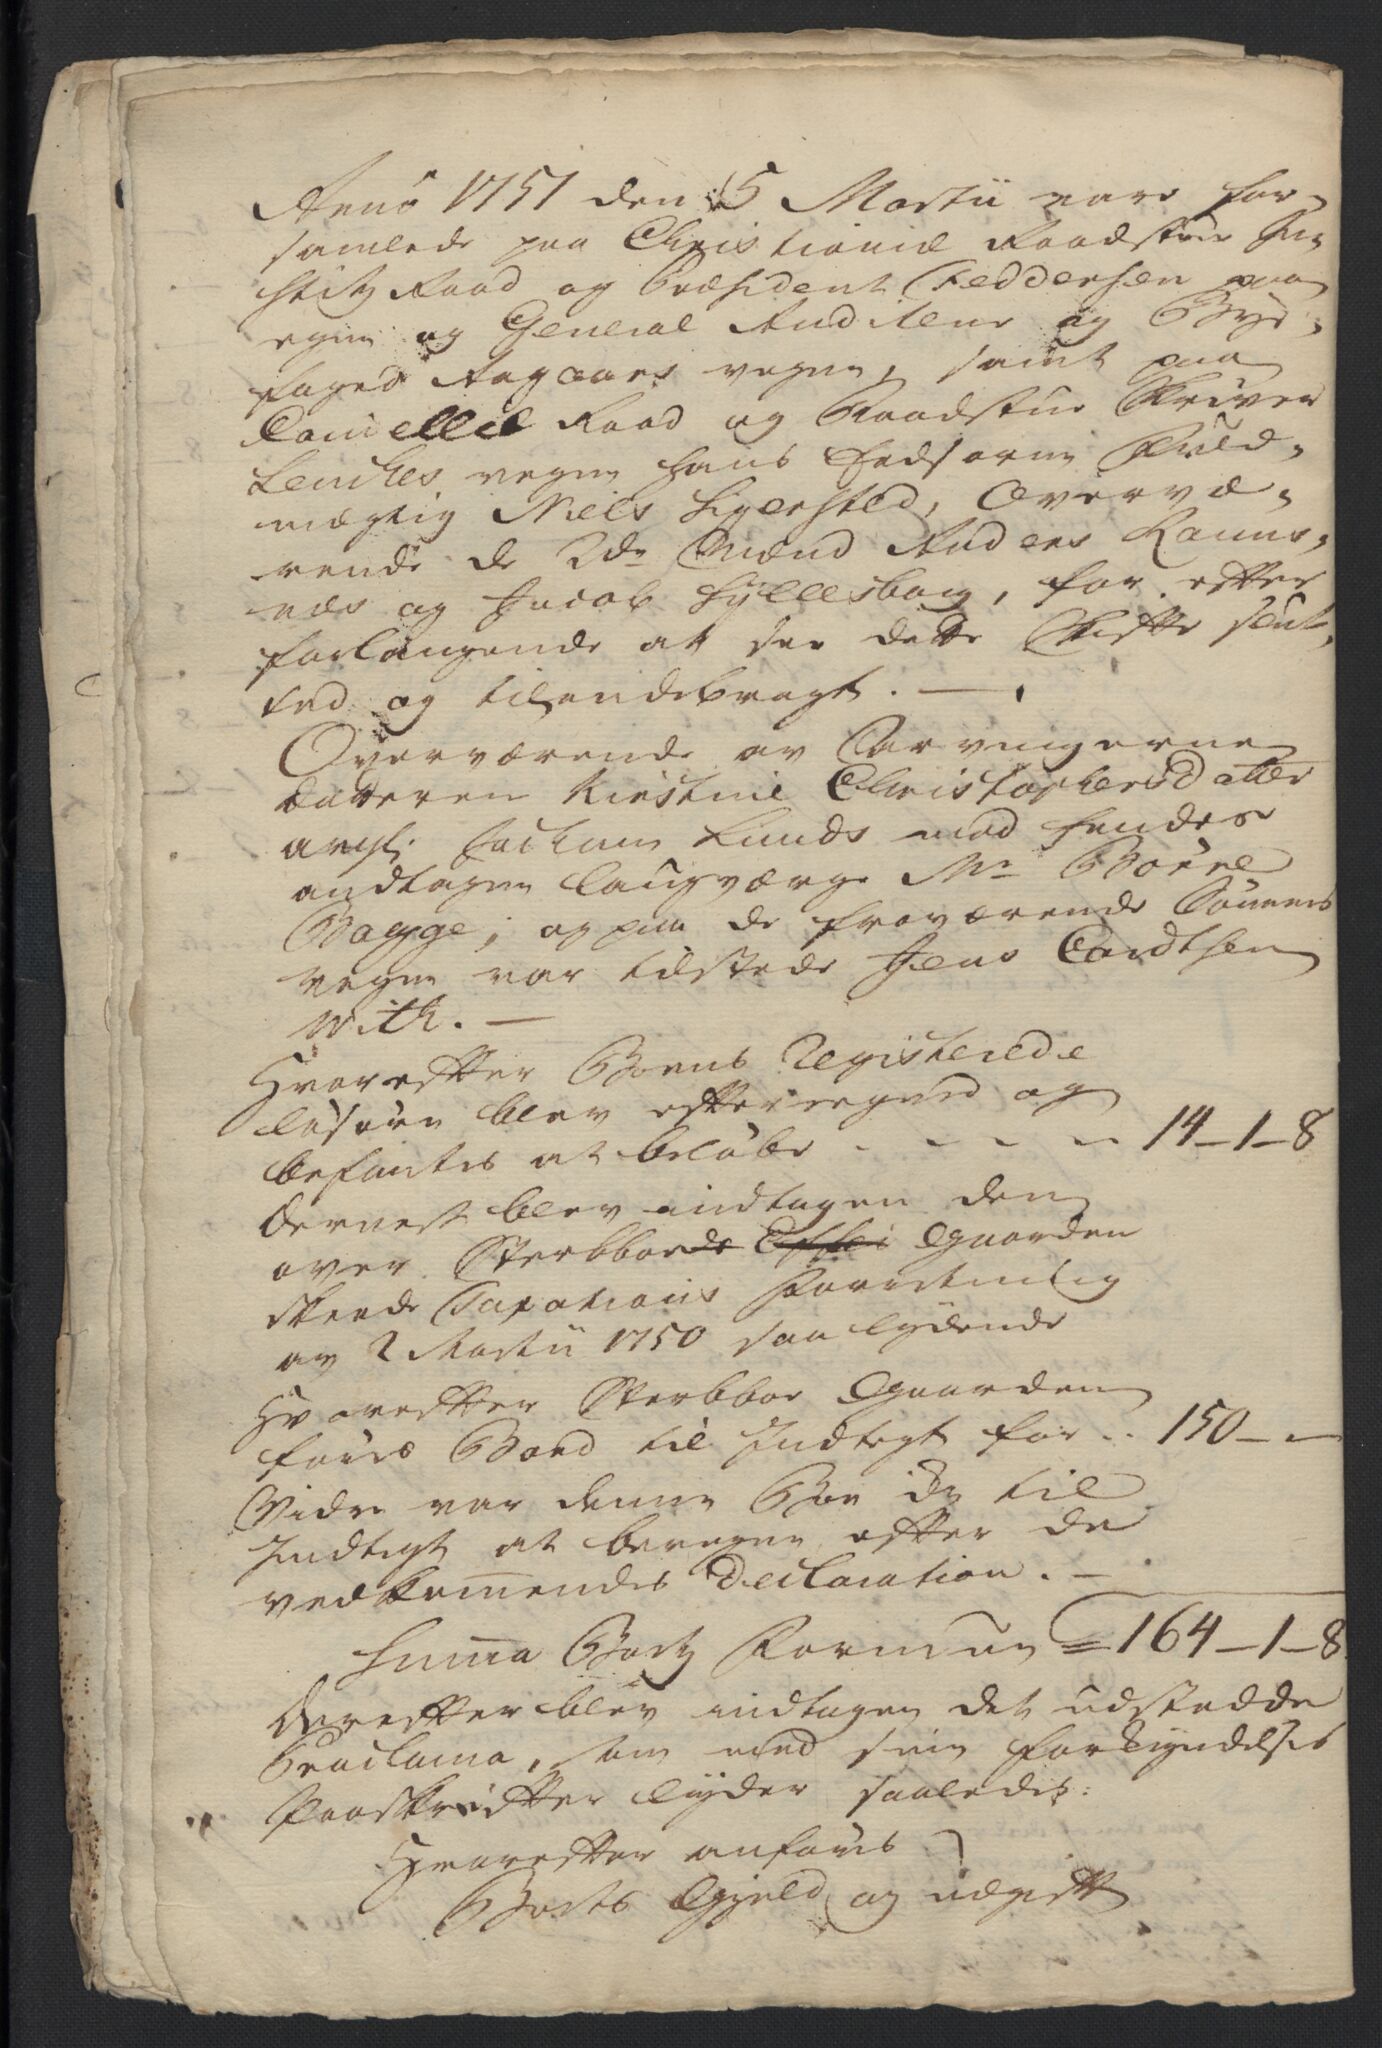 Anno 1751 den 5 Martii vare for¬
samlede paa Christiania Raadstue Ju¬
stitz Raad og Præsident Feddersen paa
egne og General Auditeur og Bye¬
foged Aagaars vegne, samt paa
Cancellie Raad og Raadstue Skriver
Lemckes vegne hans Edsvorne Fuld¬
mægtig Niels Ligersted, Overvæ¬
rende de 2de Mænd Anders Ramns¬
næs og Jacob Hyllesborg, for efter
forlangende at see dette Skifte slut¬
ted og tilendebragt. —
Overværende av Arvingerne
datteren Kirstine Christophersdatter
avgl. Jochum Lunds med hendes
andtagen laugværge Mr Börre
Bagge, og paa de fraværende Sönners
vegne var tilstede Jens Cordtsen
With. —
Hvorefter Boens Registerede
lösöre blev efterregned og
befantes at belöbe - - - - 14-1-8
Dernest blev indtagen den
over Sterbboede Effter Gaarden
skeede Taxations Forretning
av 2 Martii 1750 saa lydende
Hvorefter Sterbboe Gaarden
föris Boed til Indtegt for .. 150 - -
Vidre var denne Boe ey til
Indtegt at beregne efter de
vedkommendes Declaration. —
Summa Boets Formue = 164-1-8
Derefter blev indtagen det udstedde
Proclama, som med sine forkyndelses
Paaskrifter lyder saaledes:
Hvorefter anföris
Boets Gjeld og udgift